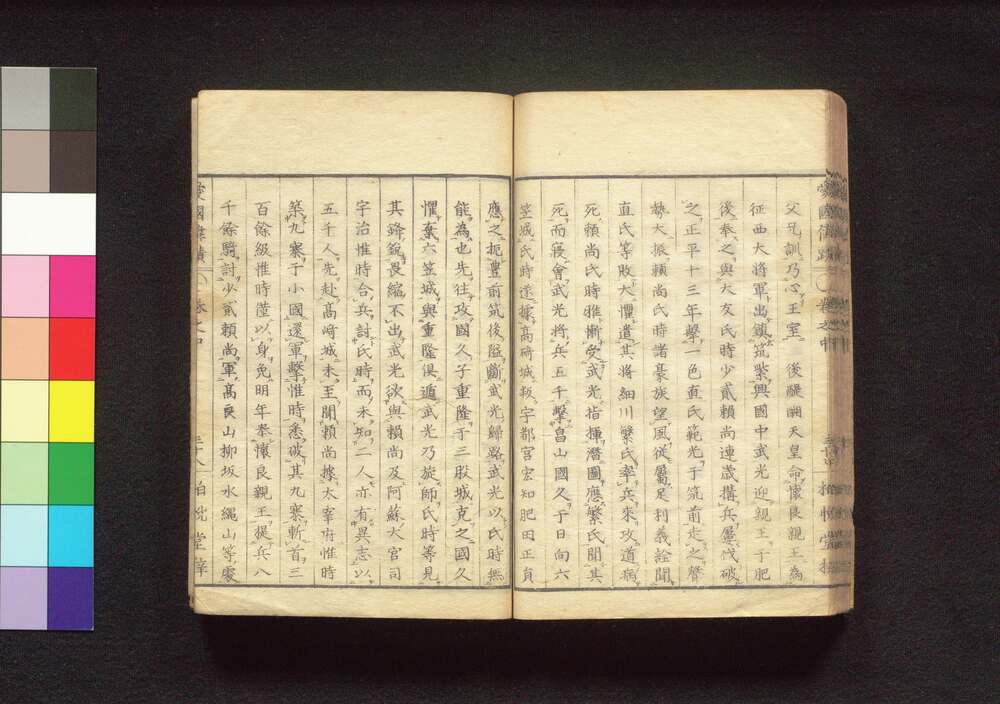 父兄訓乃心王室　後醍醐天皇命懐良親王為
征西大将軍出鎮筑紫興國中武光迎親王于肥
後奉之與大友氏時少貳頼尚連歳搆兵屢伐破
之正平十三年擊一色直氏範光于筑前走之聲
勢大振頼尚氏時諸豪族望風従属足利義詮聞
直氏等敗大懼遣其将細川繁氏率兵來攻道病
死頼尚氏時雅慚受武光指揮潜圖應繁氏聞其
死而寝會武光将兵五千擊畠山國久于日向六
笠城氏時遂據高﨑城叛宇都宮宏知肥田正貞
應之扼豊前筑後隘斷武光歸路武光以氏時無
能為也先往攻國久子重隆于三股城克之國久
懼棄六笠城與重隆倶遁武光乃旋師氏時等見
其鋒鋭畏縮不出武光欲與頼尚及阿蘇大宮司
宇治惟時合兵討氏時而未知二人亦有異志以
五千人先赴高﨑城未至聞頼尚據太宰府惟時
築九寨于小國還軍擊惟時悉破其九寨斬首三
百餘級惟時僅以身免明年奉懐良親王提兵八
千餘騎討少貳頼尚軍高良山柳坂水縄山等處
愛國偉績　巻之中　三十八